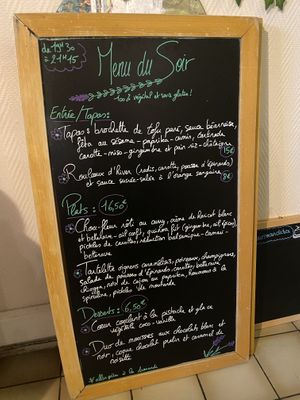 de 19H30
à 21H15
Menu du Soir
100% végétal et sans gluten!
Entrée/Tapas:
Tapas: brochette de tofu pané, sauce béarnaise,
féta au sésame - paprika - cumin,
carotte - miso - gingembre et pain riz - châtaigne
15€
Rouleaux d'hiver (radis, carotte, pousses d'épinards)
et sauce sucrée-salée à l'orange sanguine
8€
Plats: 16,50€
Chou-fleur rôti au curry, crème de haricot blanc
et betterave, ail confit, quinoa frit (gingembre, ail, épices)
pickles de carottes, réduction balsamique - cassis -
betterave
Tartelette oignons caramélisés, poireaux, champignons,
salade de pousses d'épinards, carottes, betterave
chioggia, noix de cajou au paprika, houmous à la
spiruline, pickles de moutarde
Desserts: 6,50€
Cœur coulant à la pistache et glace
végétale coco-vanille
Duo de mousses aux chocolats blanc et
noir, cœur chocolat pralin et caramel de
noisette